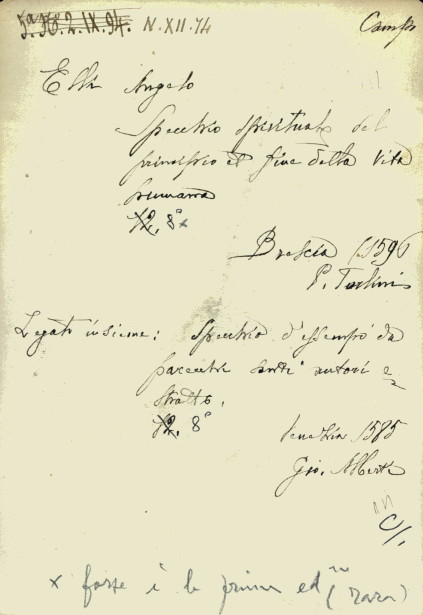 5ª.36.2.IX.94. N.XII.74
Camp
Elli Angelo
Specchio spirituale del
principio et fine della vita
humana
12. 8° x
Brescia 1596
P. Turlini
Legato insieme: Specchio d'essempi da
parecchi santi autori e-
stratto.
12. 8°
Venetia 1585
Gio. Alberti
C/.
x forse è la prima ed.ne (rara)